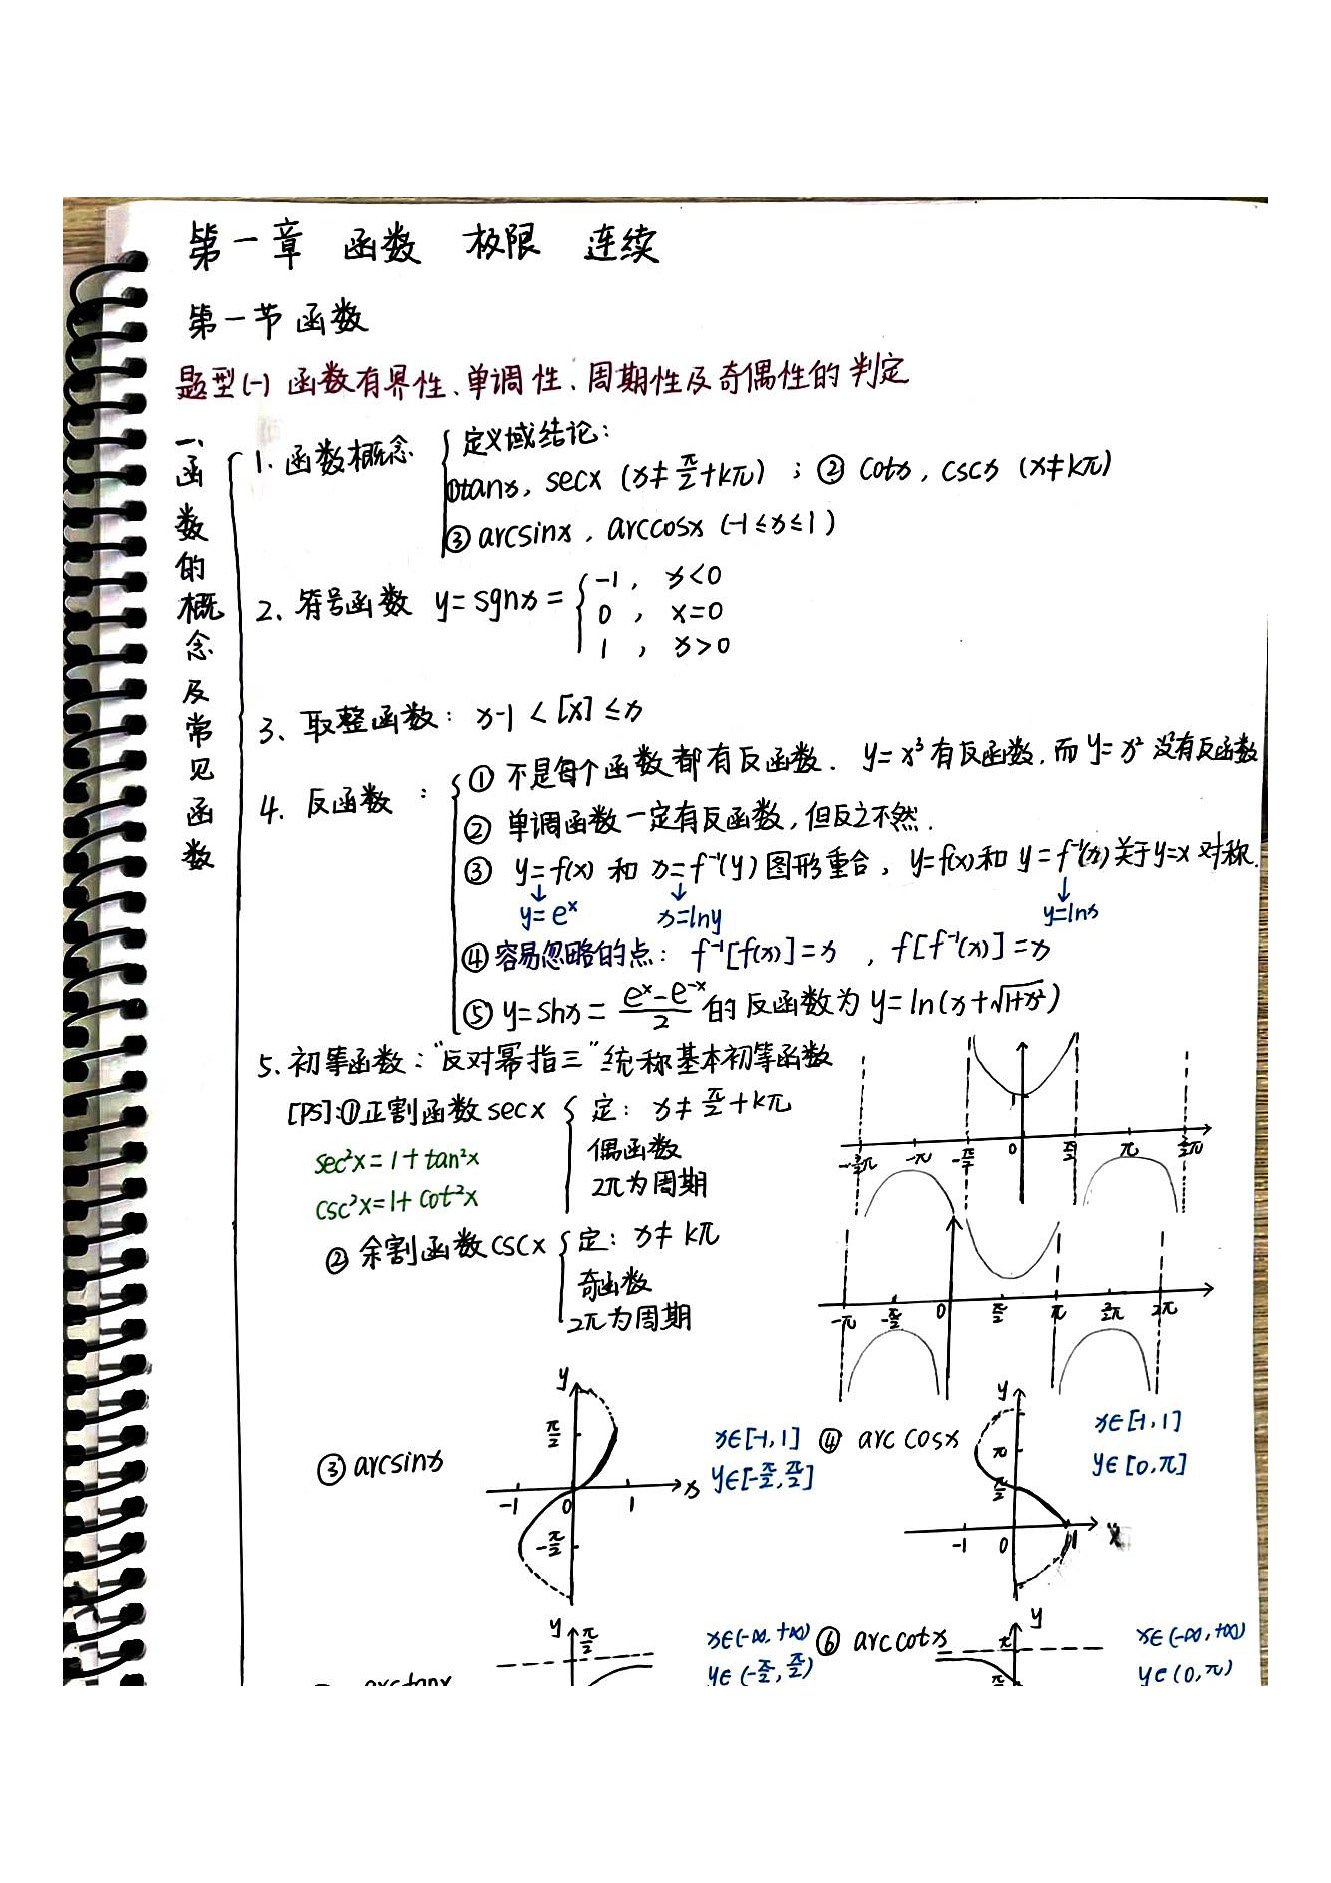 第一章 函数 极限 连续
第一节 函数
题型(一) 函数有界性、单调性、周期性及奇偶性的判定
一、函数的概念及常见函数
1. 函数概念 { 定义域结论:
①tanx, secx (x≠π/2+kπ) ; ② cotx, cscx (x≠kπ)
③ arcsinx, arccosx (-1≤x≤1)
2、符号函数 y=sgnx= { -1, x<0
0, x=0
1, x>0
3、取整函数: x-1<[x]≤x
4. 反函数: { ① 不是每个函数都有反函数. y=x³有反函数,而y=x²没有反函数
② 单调函数一定有反函数,但反之不然.
③ y=f(x) 和 x=f⁻¹(y) 图形重合, y=f(x)和 y=f⁻¹(x)关于y=x对称.
↓ ↓ ↓
y=eˣ x=lny y=lnx
④容易忽略的点: f⁻¹[f(x)]=x , f[f⁻¹(x)]=x
⑤ y=shx=(eˣ-e⁻ˣ)/2 的反函数为 y=ln(x+√(1+x²))
5、初等函数:“反对幂指三”统称基本初等函数
[PS]:①正割函数secx { 定: x≠π/2+kπ
偶函数
2π为周期
sec²x=1+tan²x
csc²x=1+cot²x
1
-3/2π -π -π/2 0 π/2 π 3/2π
② 余割函数cscx { 定: x≠kπ
奇函数
2π为周期
-π -π/2 0 π/2 π 3/2π 2π
③ arcsinx
y
π/2
-1 0 1 x
-π/2
x∈[-1,1]
y∈[-π/2,π/2]
④ arccosx
y
π
π/2
-1 0 1 x
x∈[-1,1]
y∈[0,π]
arctanx
y π/2
x∈(-∞,+∞)
y∈(-π/2,π/2)
⑥ arccotx
y
π
π/2
x∈(-∞,+∞)
y∈(0,π)